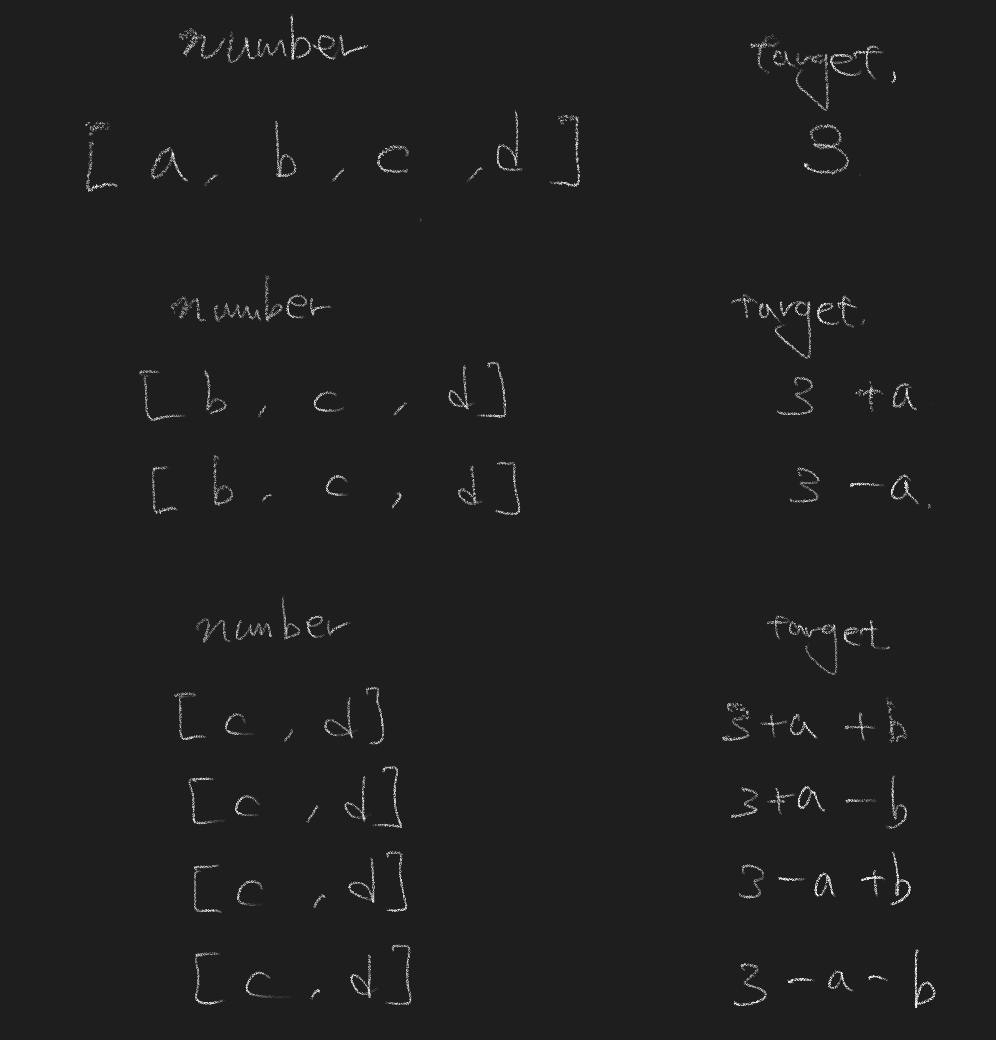 number target.
[ a, b , c , d ] 3
number target.
[ b , c , d ] 3 +a
[ b , c , d ] 3 -a.
number target
[ c , d ] 3+a +b
[ c , d ] 3+a -b
[ c , d ] 3-a +b
[ c , d ] 3-a-b